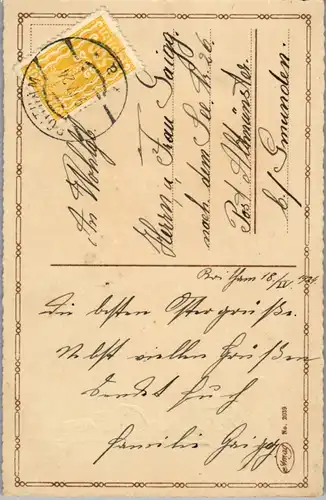 An Wohlg.
Herrn u. Frau Gaigg
nach dem See Nr. 26
Post Altmünster
b/ Gmunden.
18/IV.
Die besten Ostergrüße.
Nebst vielen Grüßen
sendet Euch
Familie Gaigg
No. 2020